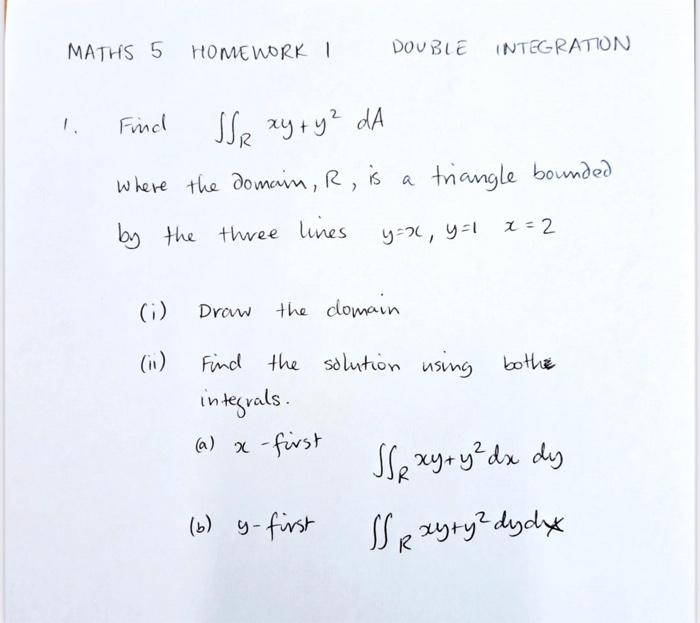 MATHS 5 HOMEWORK 1 DOUBLE INTEGRATION
1. Find ∬_R xy+y² dA
where the domain, R, is a triangle bounded
by the three lines y=x, y=1 x=2
(i) Draw the domain
(ii) Find the solution using both
integrals.
(a) x-first ∬_R xy+y² dx dy
(b) y-first ∬_R xy+y² dy dx